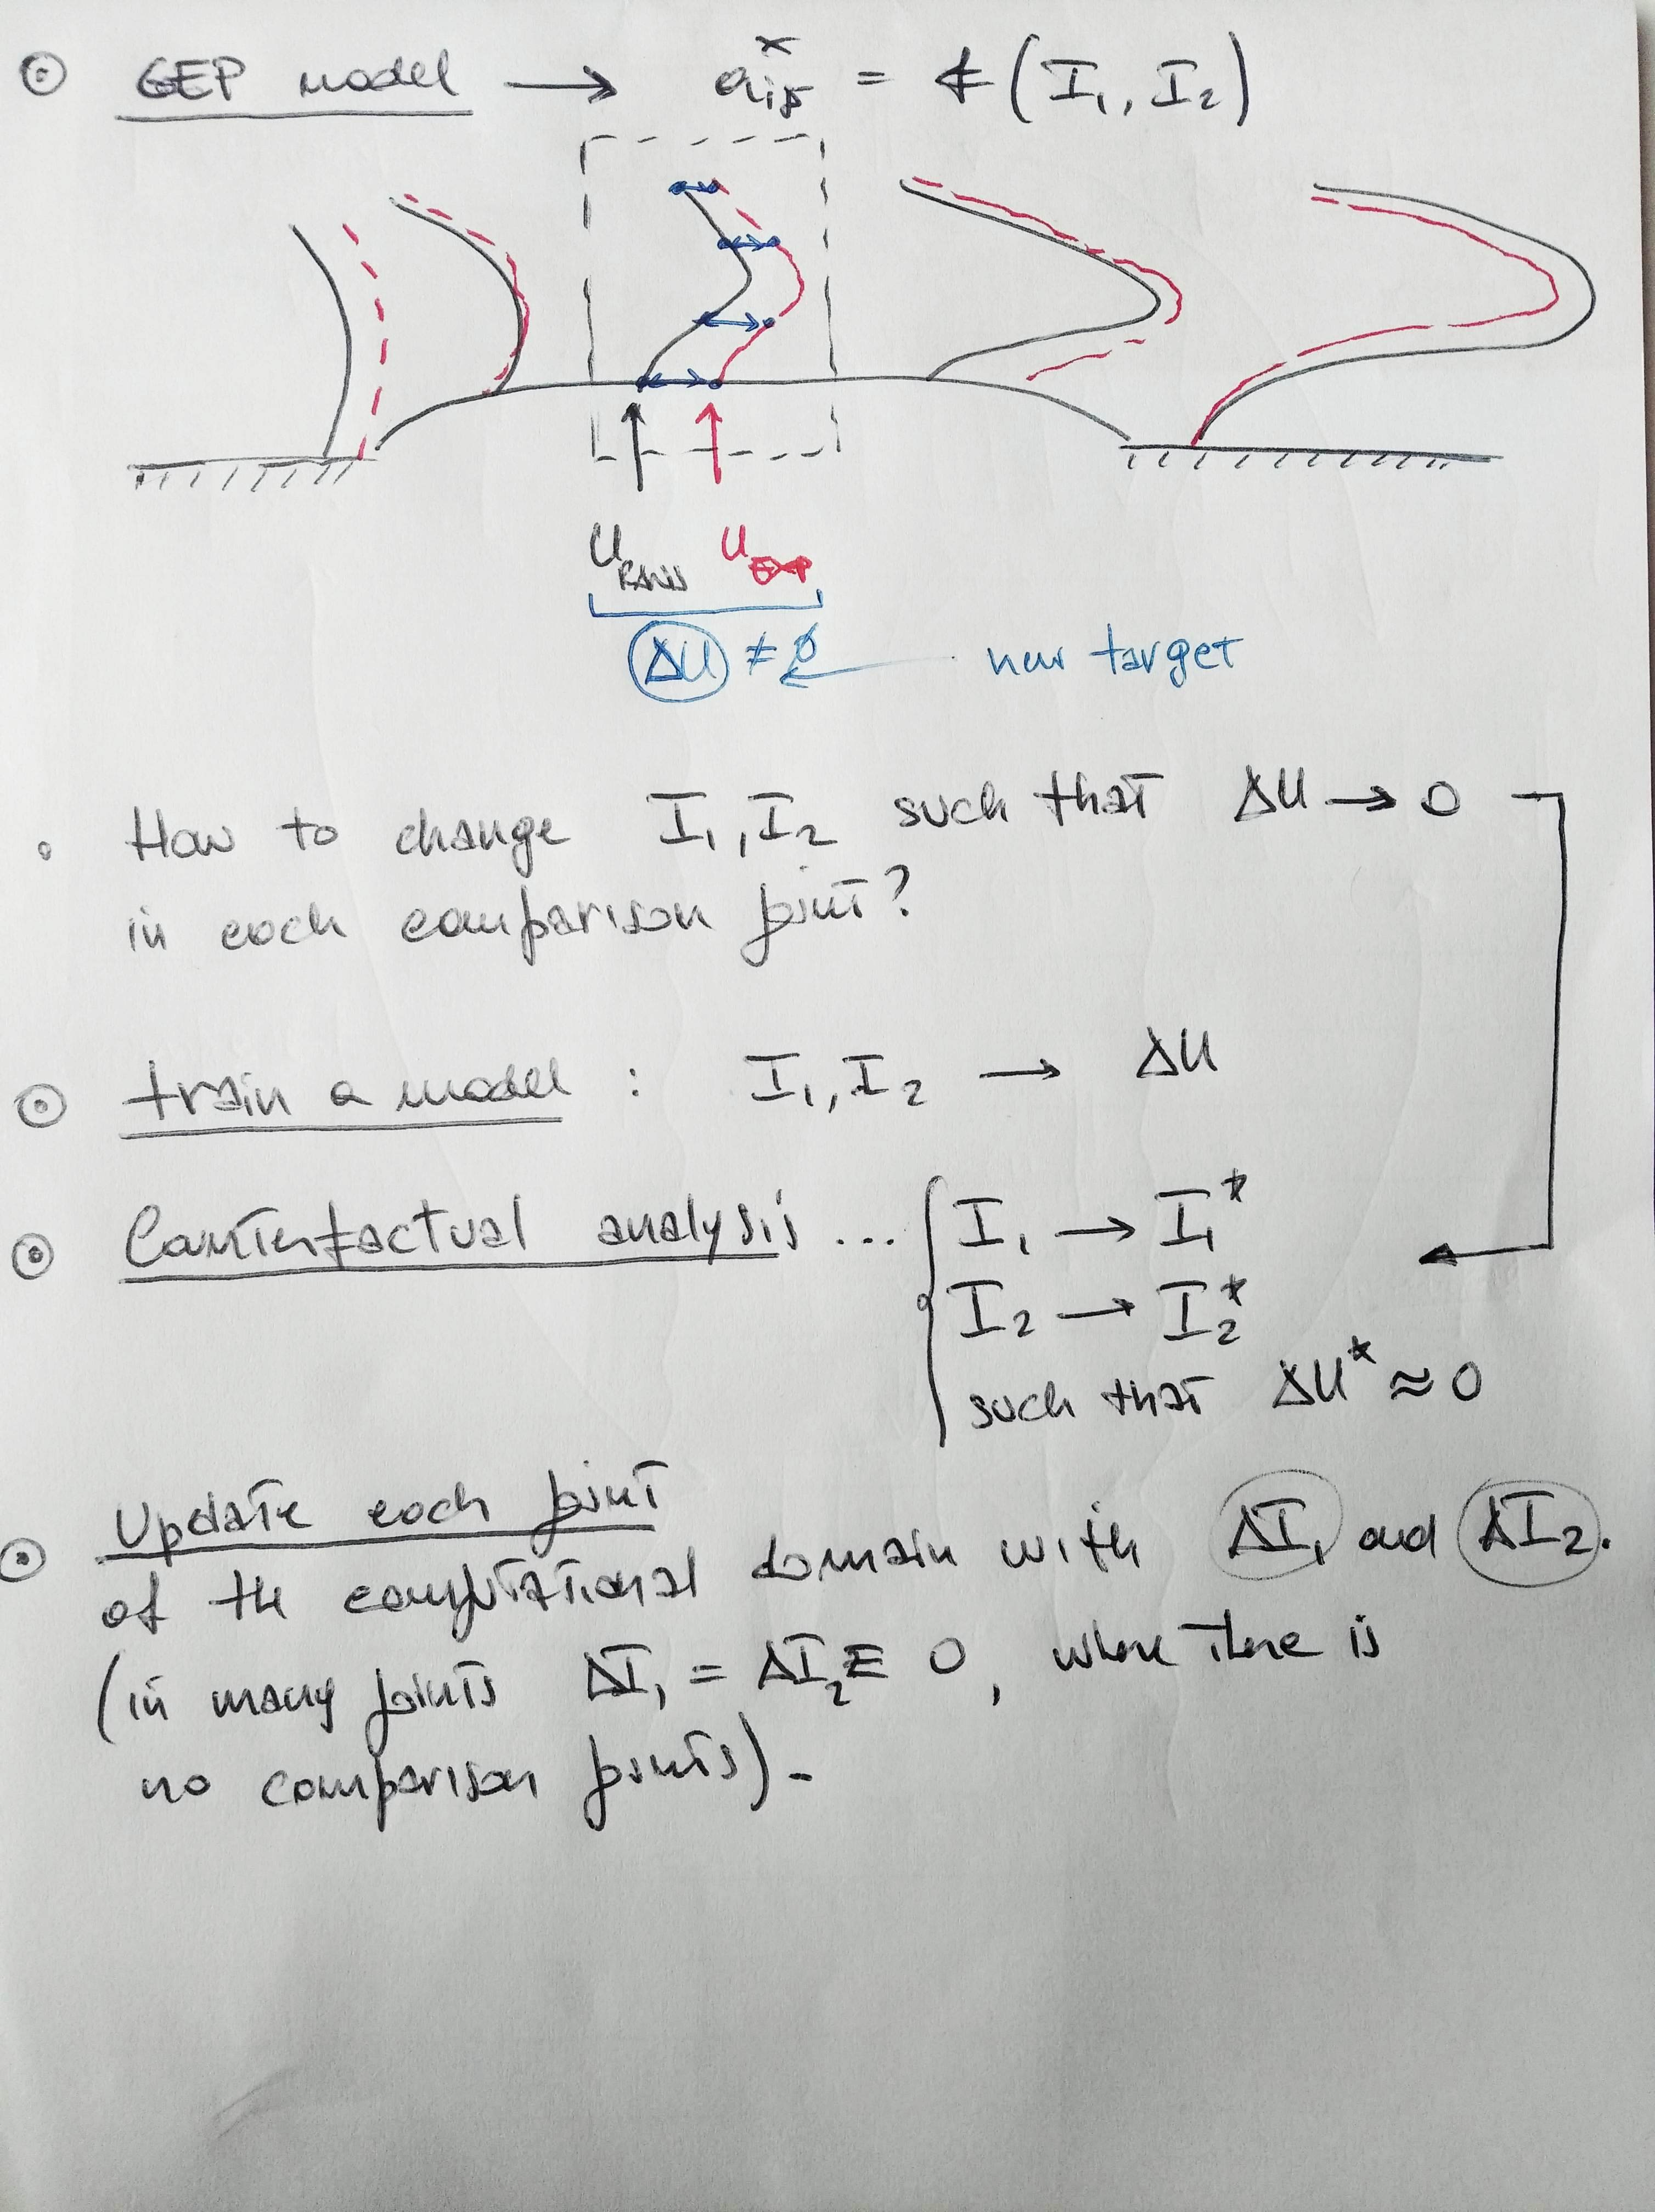 GEP model → aᵢⱼˣ = f (I₁, I₂)
U_RANS U_EXP
ΔU ≠ ∅ ← new target
How to change I₁, I₂ such that ΔU → 0
in each comparison point?
train a model : I₁, I₂ → ΔU
Counterfactual analysis ... { I₁ → I₁*
I₂ → I₂*
such that ΔU* ≈ 0
Update each point
of the computational domain with ΔI₁ and ΔI₂.
(in many points ΔI₁ = ΔI₂ ≡ 0, where there is
no comparison points).